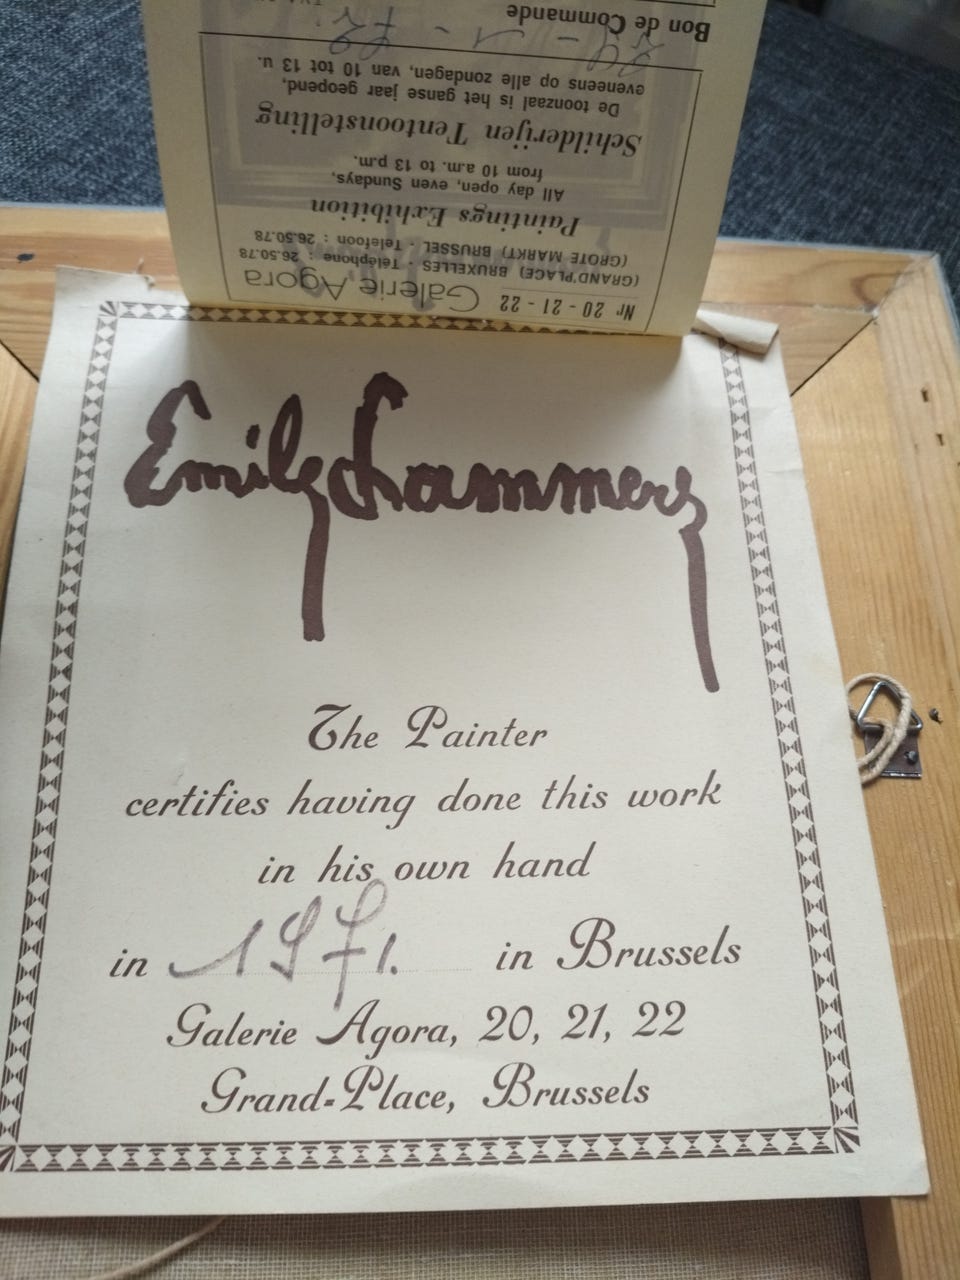 Bon de Commande
eveneens op alle zondagen, van 10 tot 13 u.
De toonzaal is het ganse jaar geopend,
Schilderijen Tentoonstelling
from 10 a.m. to 13 p.m.
All day open, even Sundays,
Paintings Exhibition
(GROTE MARKT) BRUSSEL - Telefoon : 26.50.78
(GRAND'PLACE) BRUXELLES - Téléphone : 26.50.78
Nr 20 - 21 - 22 Galerie Agora
Emily Lammers
The Painter
certifies having done this work
in his own hand
in 1971. in Brussels
Galerie Agora, 20, 21, 22
Grand-Place, Brussels